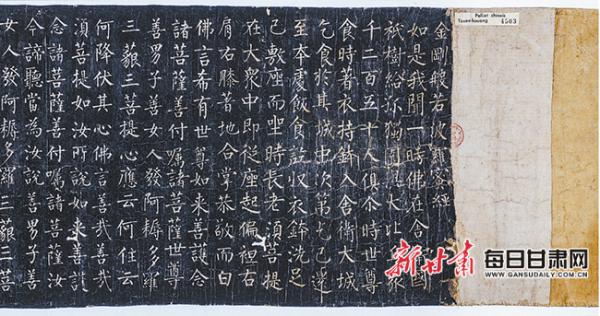 Pelliot chinois
Touen-houang 4503
金剛般若波羅蜜經
如是我聞一時佛在舍國
祇樹給孤獨園與大比丘眾
千二百五十人俱尒時世尊
食時著衣持鉢入舍衛大城
乞食於其城中次第乞已還
至本處飯食訖收衣鉢洗足
已敷座而坐時長老須菩提
在大眾中即從座起偏袒右
肩右膝著地合掌恭敬而白
佛言希有世尊如來善護念
諸菩薩善付囑諸菩薩世尊
善男子善女人發阿耨多羅
三藐三菩提心應云何住云
何降伏其心佛言善哉善哉
須菩提如汝所說如來善護
念諸菩薩善付囑諸菩薩汝
今諦聽當為汝說善男子善
女人發阿耨多羅三藐三菩
新甘肃 每日甘肃网
WWW.GANSUDAILY.COM.CN